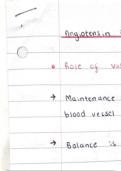 Angiotensin
• Role of vas
→ Maintenance
blood vessel
→ Balance is